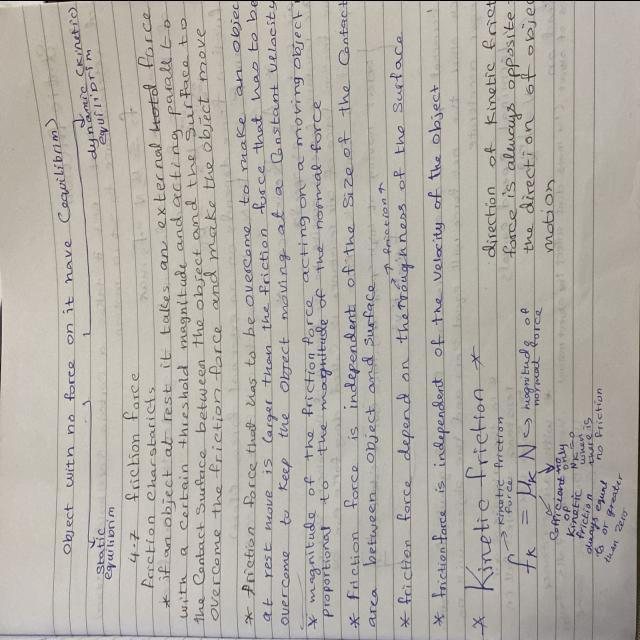 Object with no force on it have (equilibrim)
static equilibrim
dynamic (kinetic) equilibrim
4-7 friction force
friction charstaricts
* if an object at rest it takes an external force
with a certain threshold magnitude and acting parall to
the contact surface between the object and the surface to
overcome the friction force and make the object move
* friction force that has to be overcome to make an objec
at rest move is larger than the friction force that has to be
overcome to keep the object moving at a constant velocity
* magnitude of the friction force acting on a moving object
proportional to the magnitude of the normal force
* friction force is independent of the size of the contact
area between object and surface
↗ friction↑
* friction force depend on the roughness of the surface
* friction force is independent of the velocity of the object
* Kinetic friction *
→ kinetic friction force
fk = μk N → magnitude of normal force
Cofficient of kinetic friction always equal to or greater than zero
μk = 0 only when there is no friction
direction of kinetic frict
force is always opposite
the direction of objec
motion